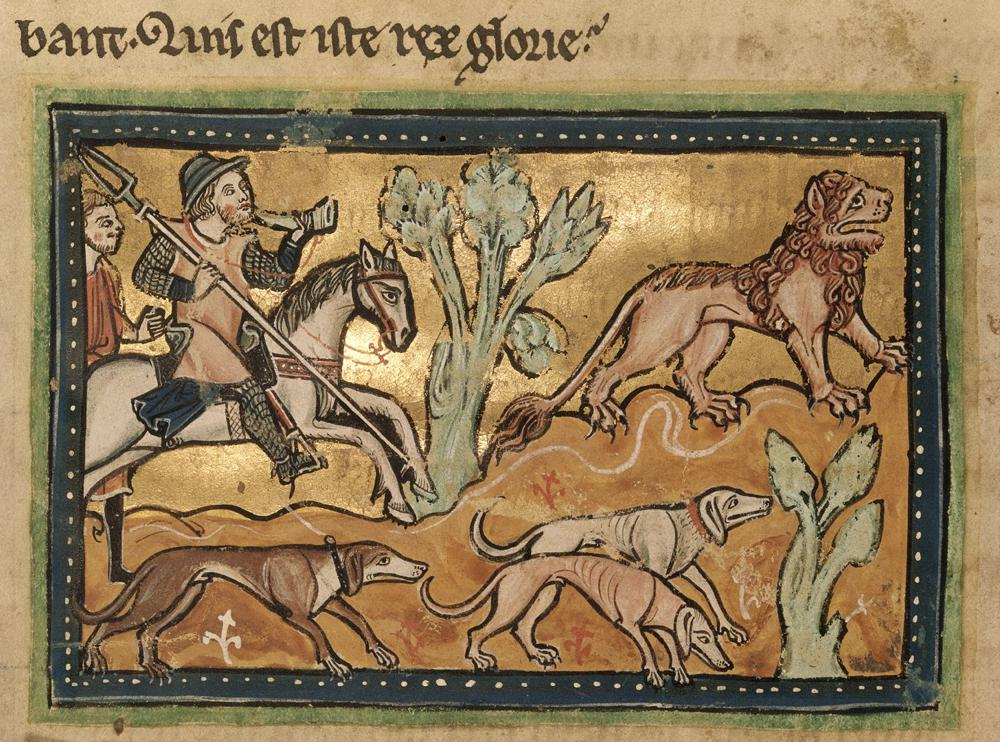 bant. Quis est iste rex glorie?